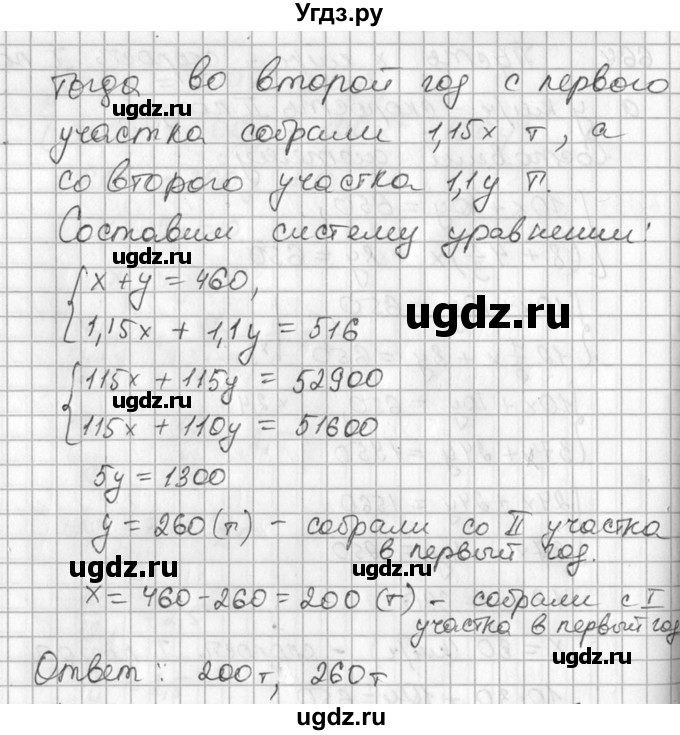 Угдз.ру
Тогда во второй год с первого
ugdz.ru
участка собрали 1,15x т, а
со второго участка 1,1y т.
Составим систему уравнений:
ugdz.ru
x + y = 460,
ugdz.ru
1,15x + 1,1y = 516
115x + 115y = 52900
ugdz.ru
115x + 110y = 51600
5y = 1300
y = 260 (т) - собрали со II участка
в первый год.
ugdz.ru ugdz.ru
x = 460 - 260 = 200 (т) - собрали с I
участка в первый год
ugdz.ru
Ответ: 200т, 260т
ugdz.ru
ugdz.ru